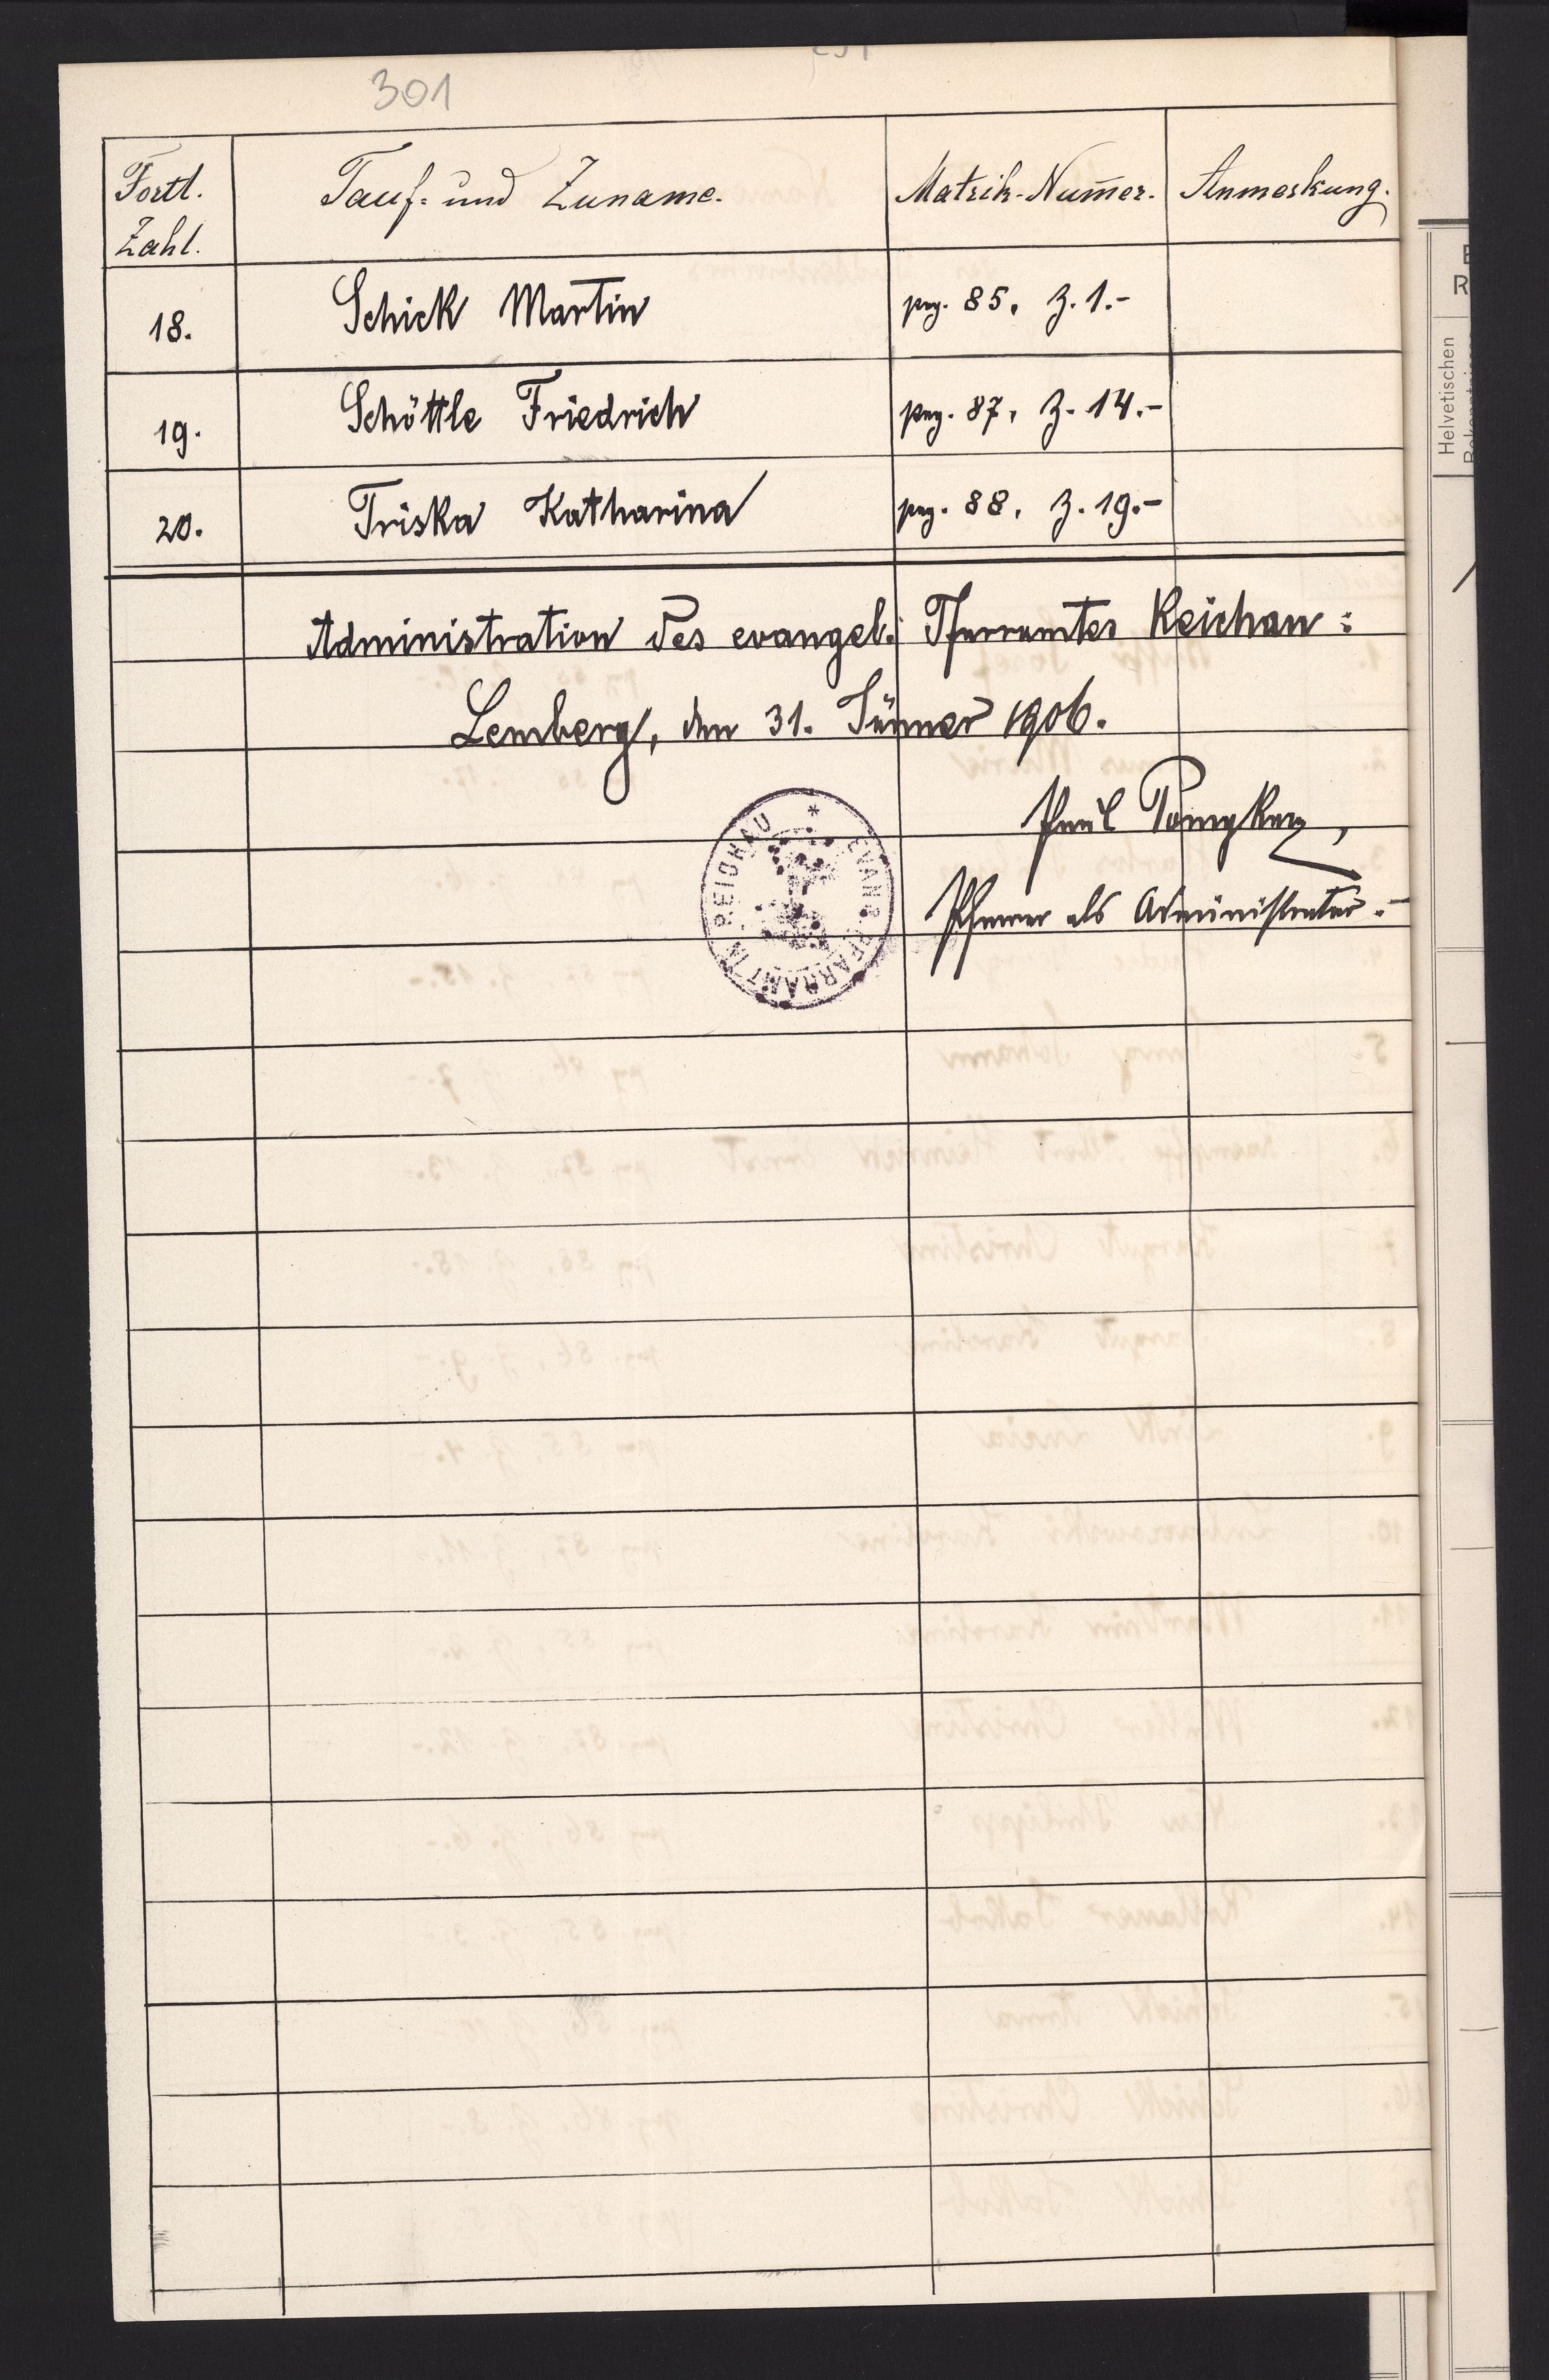 301
Fortl. Zahl. Tauf- und Zuname. Matrik-Num̄er. Anmerkung.
18. Schick Martin pag. 85, Z. 1.-
19. Schöttle Friedrich pag. 87, Z. 14.-
20. Triska Katharina pag. 88, Z. 19.-
Administration des evangel. Pfarramtes Reichau:
Lemberg, den 31. Jänner 1906.
Paul
Pfarrer als Administrator.-
* EVANG. PFARRAMT IN REICHAU
Helvetischen